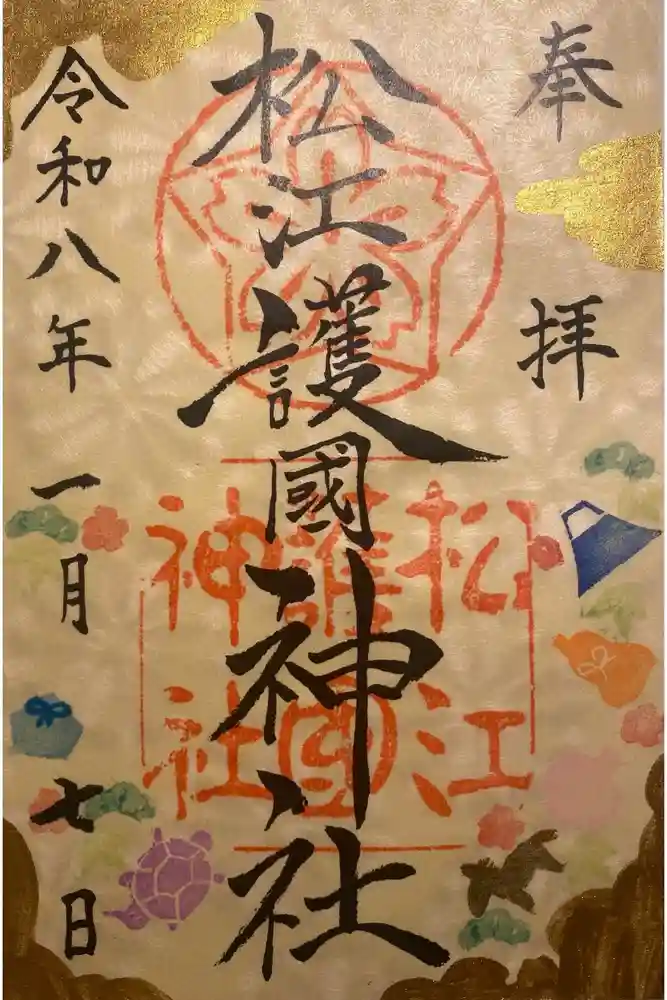 奉拝
松江護國神社
松江
護國
神社
令和八年一月七日